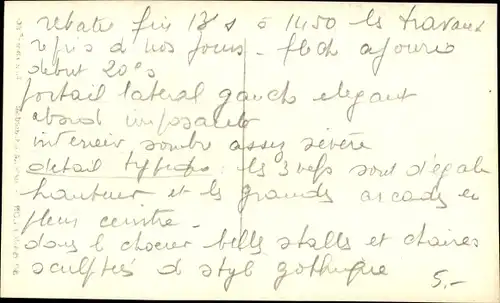 rebatie fin 13 s à 1450 les travaux
repris de nos jours - flèche ajourée
debut 20° s
portail lateral gauche elegant
abord imposante
interieur sombre assez sévère
detail typique : les 3 nefs sont d'égale
hauteur et les grandes arcades en
plein cintre -
dans le choeur belles stalles et chaires
sculptées de style gothique
5.-